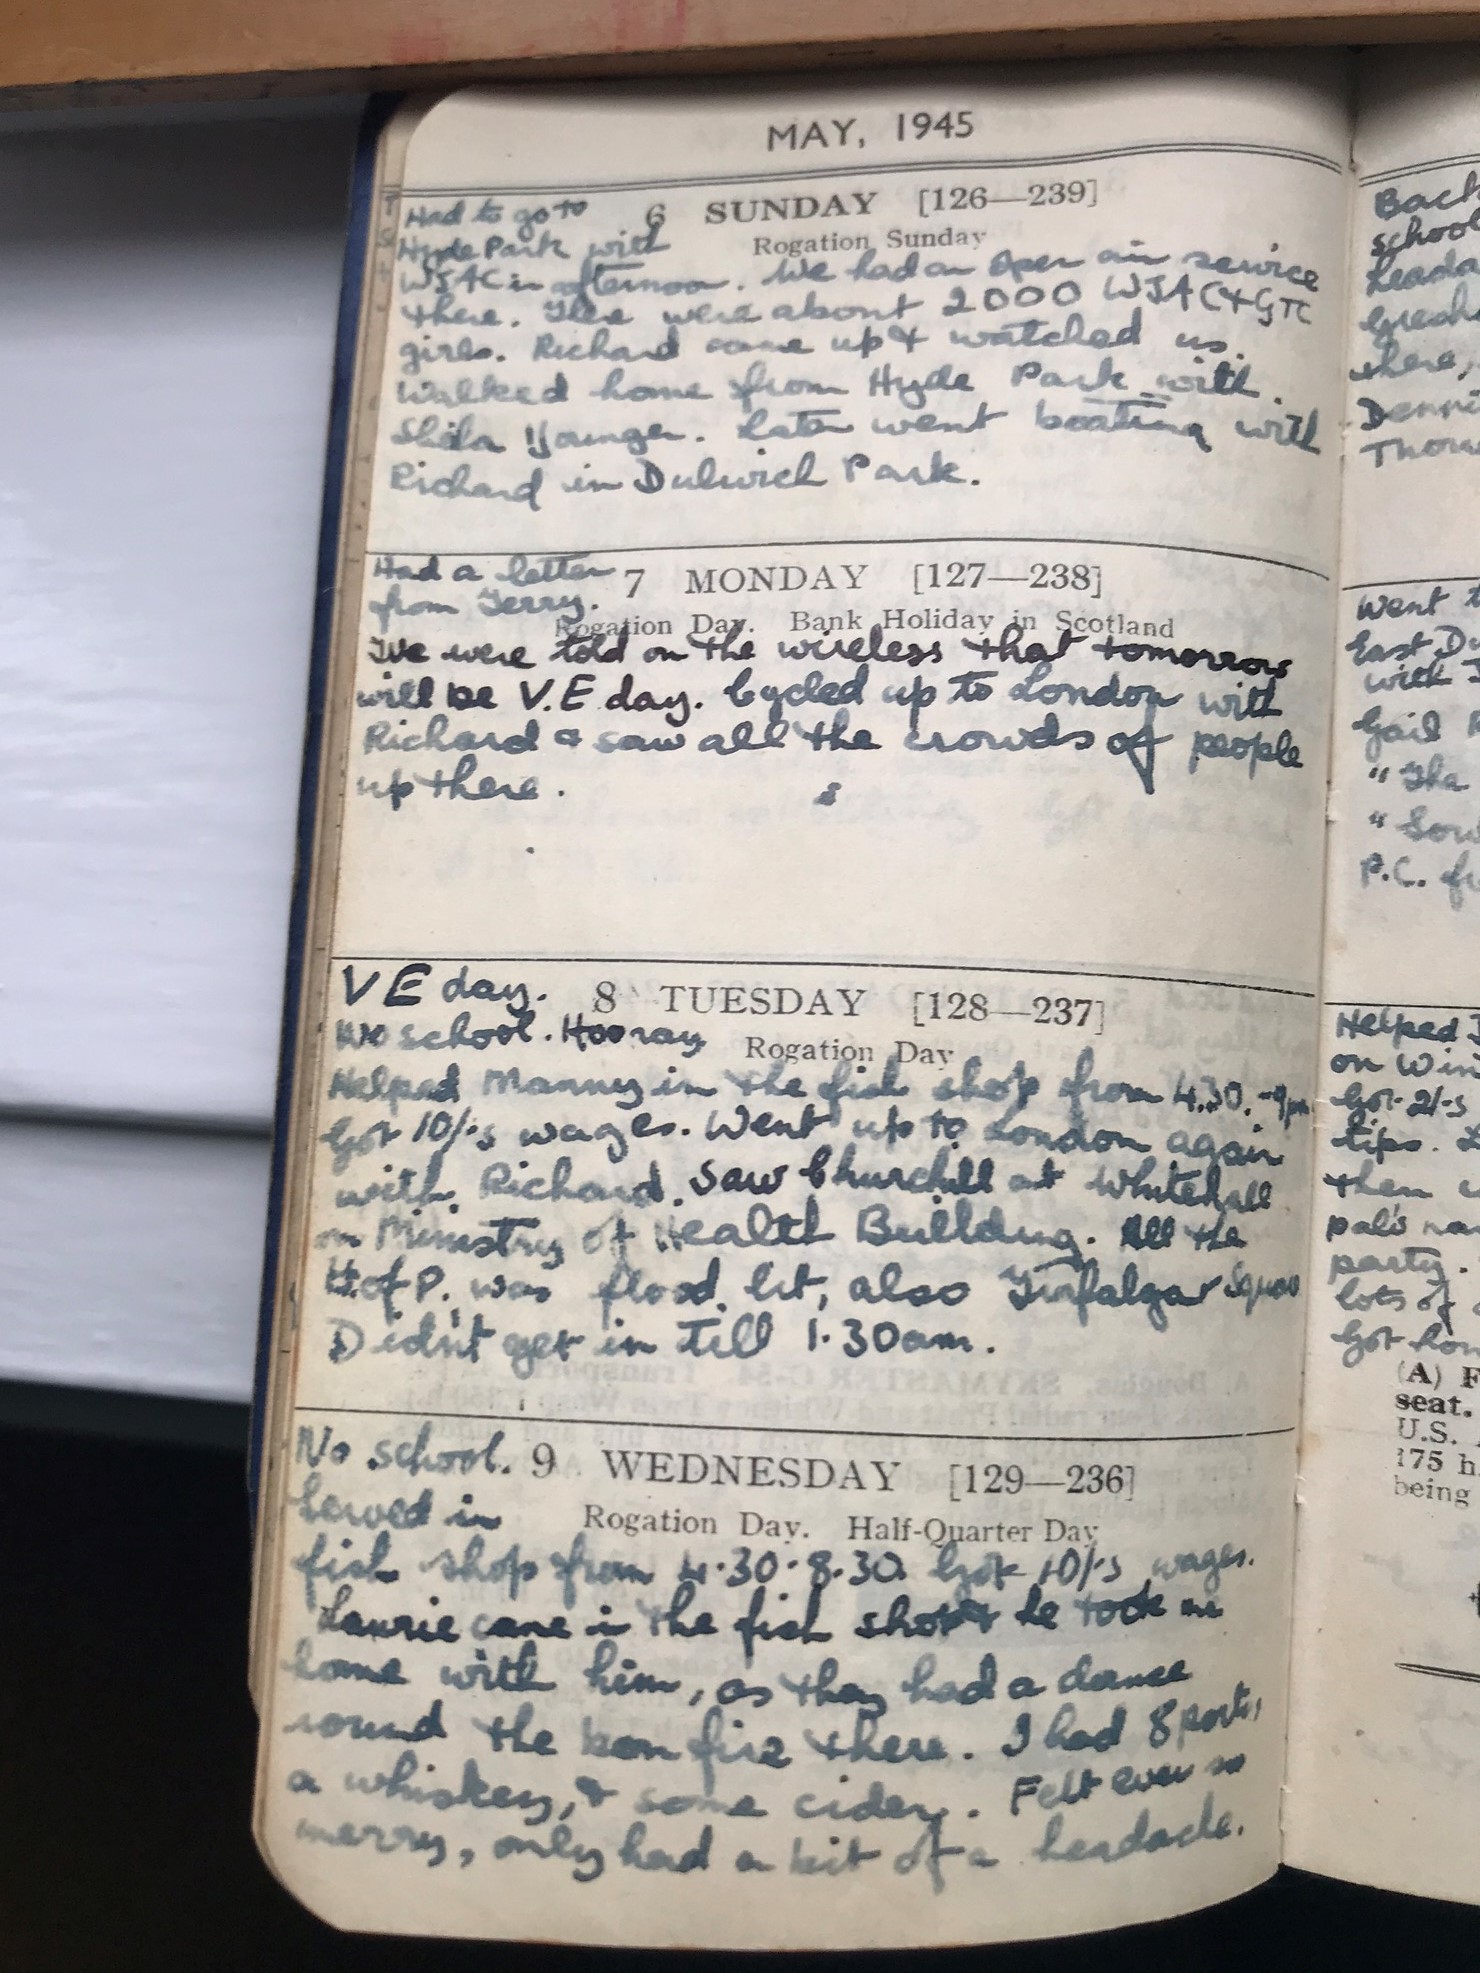 MAY, 1945
6 SUNDAY [126—239]
Rogation Sunday
Had to go to
Hyde Park with
WJAC in afternoon. We had an open air service
there. There were about 2000 WJAC & GTC
girls. Richard came up & watched us.
Walked home from Hyde Park with
Shila Younger. Later went boating with
Richard in Dulwich Park.
7 MONDAY [127—238]
Rogation Day. Bank Holiday in Scotland
Had a letter
from Terry.
We were told on the wireless that tomorrow
will be V.E day. Cycled up to London with
Richard & saw all the crowds of people
up there.
8 TUESDAY [128—237]
Rogation Day
V E day.
No school. Hooray
Helped Manny in the fish shop from 4.30.-9pm
Got 10/-s wages. Went up to London again
with Richard. Saw Churchill at Whitehall
on Ministry of Health Building. All the
H.of P. was flood lit, also Trafalgar Square
Didn't get in till 1.30am.
9 WEDNESDAY [129—236]
Rogation Day. Half-Quarter Day
No school.
Served in
fish shop from 4.30-8.30. Got 10/-s wages.
Laurie came in the fish shop & he took me
home with him, as they had a dance
round the bon fire there. I had 8 ports,
a whiskey, & some cider. Felt ever so
merry, only had a bit of a headache.
Back
school
there,
Went
East Du
with
Gail
"The
"
P.C.
Helped
on Win
Got 2/-s
tips.
then
pals
party.
lots of
Got hom
(A) F
seat.
U.S.
175 h.
being